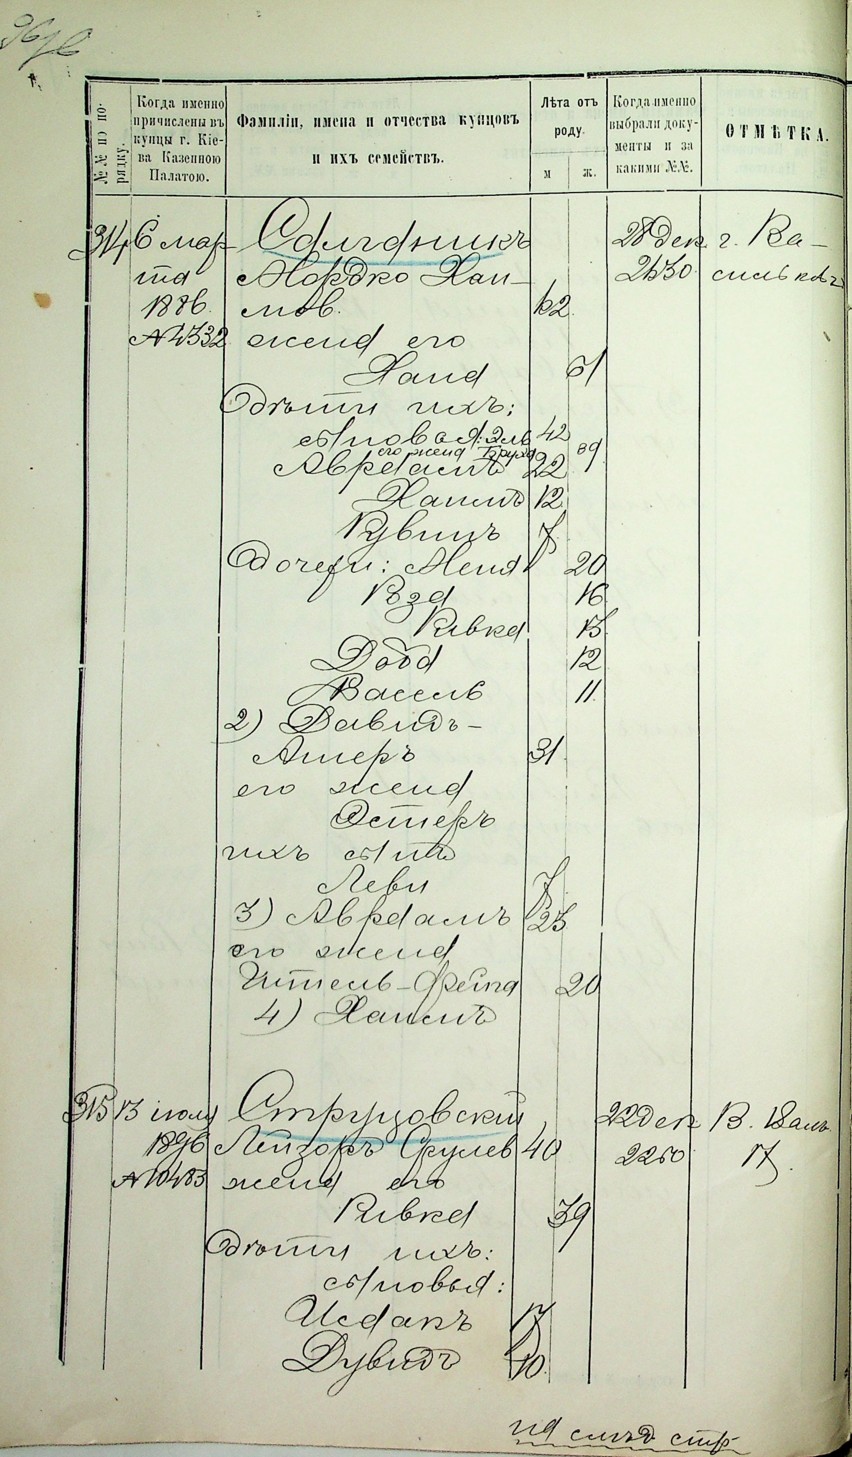 №№ по порядку.
Когда именно причислены въ купцы г. Кіева Казенною Палатою.
Фамиліи, имена и отчества купцовъ и ихъ семействъ.
Лѣта отъ роду.
м ж.
Когда именно выбрали документы и за какими №№.
ОТМѢТКА.
314 6 мар- Салганикъ 28 Дек. г. Ва-
та Мордко Хаи- 2530 сильковъ
1886. мов. 62
№ 4332 жена его
Хана 61
Дѣти ихъ:
сыновья: Эль 42
его жена Бруха 39
Авраамъ 22
Хаимъ 12
Рувинъ 7
Дочери: Меня 20
Рэза 16
Ривка 13
Доба 12
Вассль 11
2) Давидъ-
Ашеръ 31
его жена
Эстеръ
ихъ сынъ
Леви 7
3) Авраамъ 23
его жена
Ител-Фейга 20
4) Хаимъ
315 13 іюля Струзовскій 22 дек В. Вал.
1896 Лейзоръ Срулев 40 2260 17
№ 10483 жена его
Ривка 39
Дѣти ихъ:
сыновья:
Исаакъ 17
Дувидъ 10
на слѣд стр